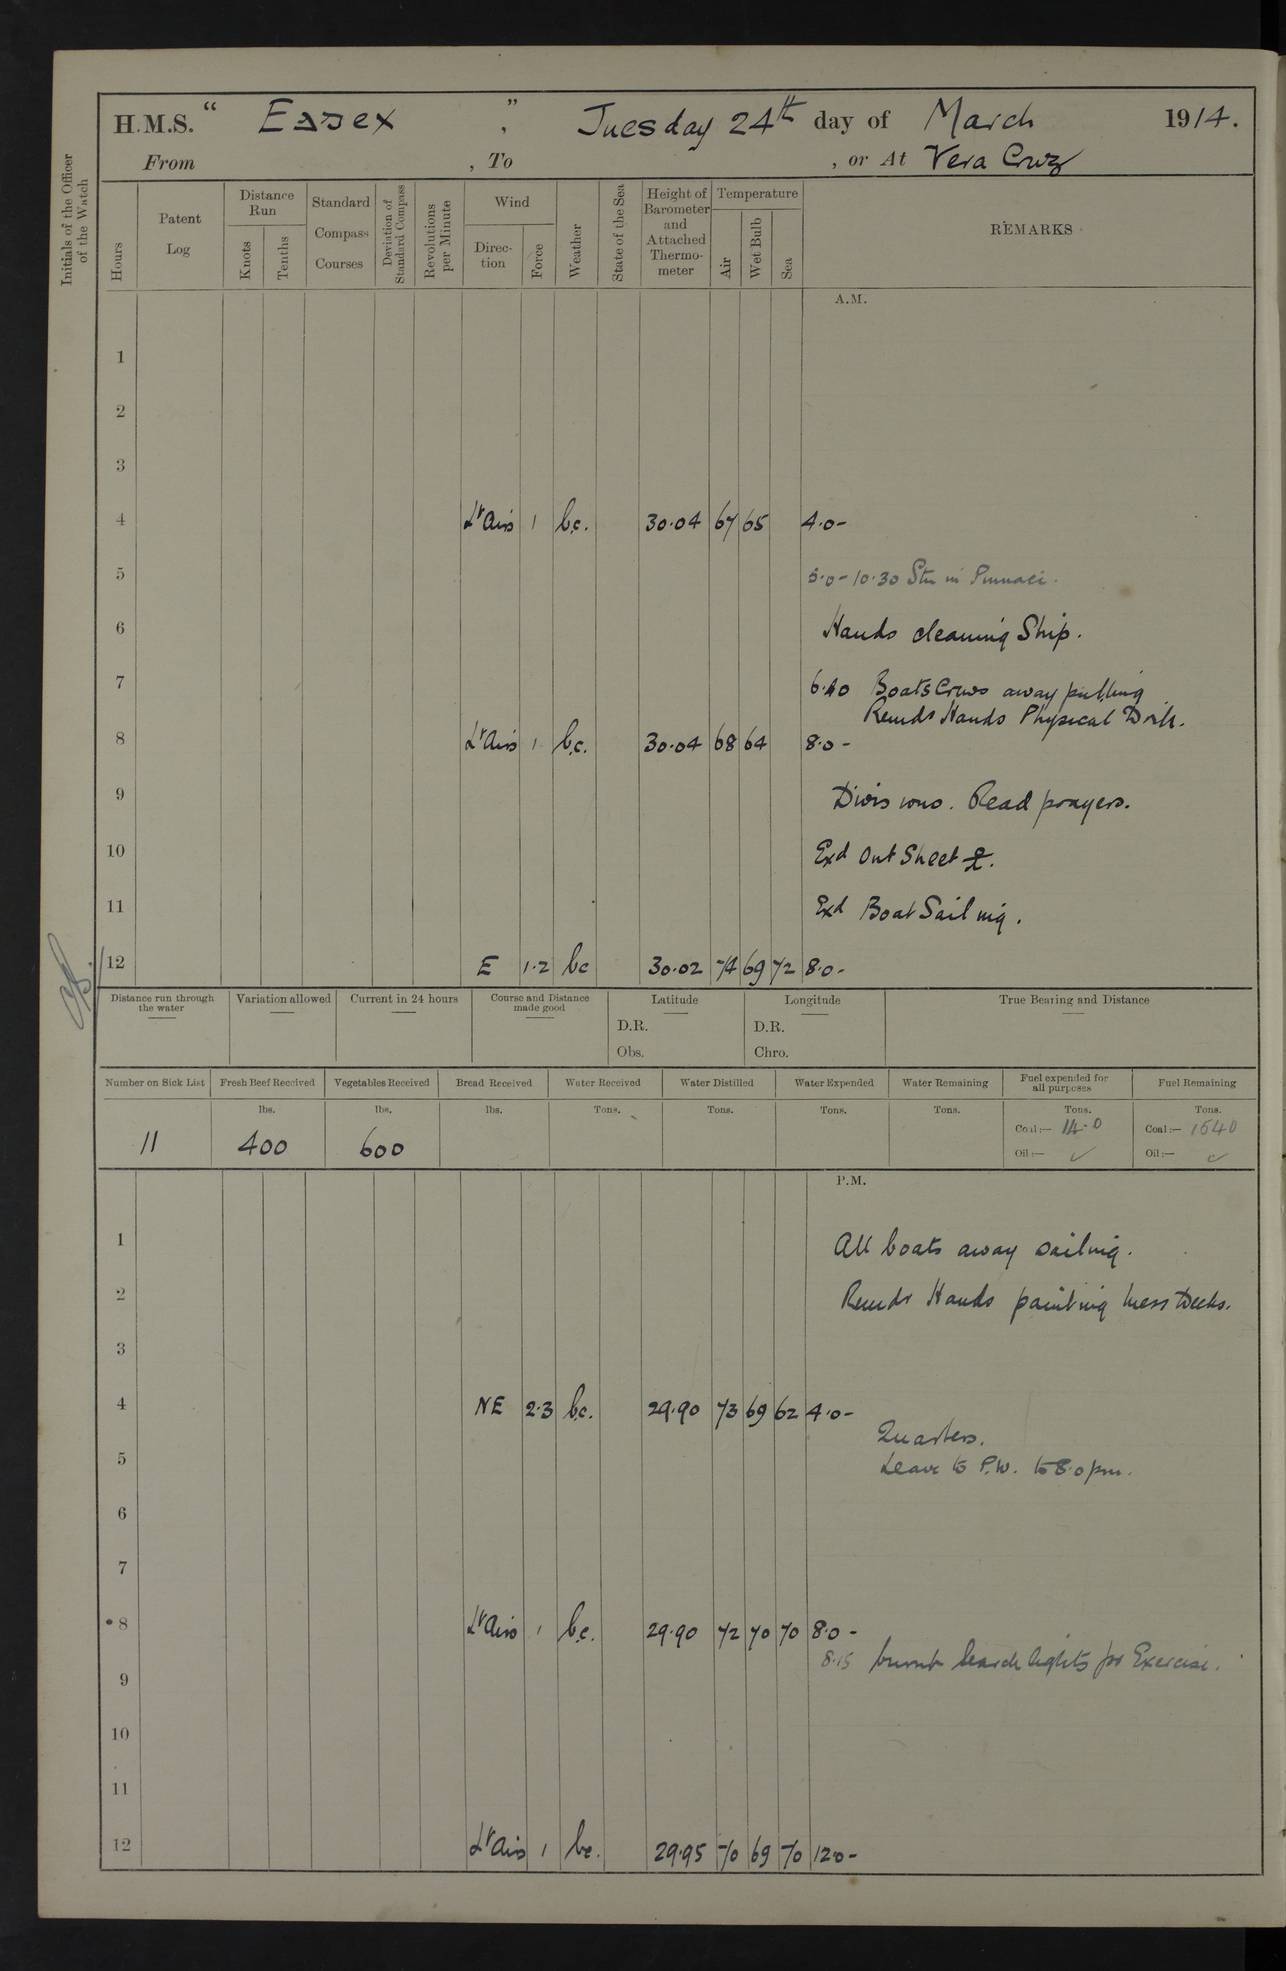 H.M.S. “ Essex ” , Tuesday 24th day of March 1914.
From , To , or At Vera Cruz
Initials of the Officer of the Watch
Hours
Patent Log
Distance Run
Knots
Tenths
Standard Compass Courses
Deviation of Standard Compass
Revolutions per Minute
Wind
Direc- tion
Force
Weather
State of the Sea
Height of Barometer and Attached Thermo- meter
Temperature
Air
Wet Bulb
Sea
REMARKS
A.M.
1
2
3
4 Lt Airs 1 b.c. 30.04 67 65 4.0-
5 5.0-10.30 Stm in Pinnace.
6 Hands cleaning Ship.
7 6.40 Boats Crews away pulling
Remdr Hands Physical Drill.
8 Lt Airs 1 b.c. 30.04 68 64 8.0-
9 Divisions. Read prayers.
10 Exd Out Sheet
11 Exd Boat Sailing.
12 E 1.2 bc 30.02 74 69 72 8.0-
Distance run through the water
Variation allowed
Current in 24 hours
Course and Distance made good
Latitude
D.R.
Obs.
Longitude
D.R.
Chro.
True Bearing and Distance
Number on Sick List Fresh Beef Received Vegetables Received Bread Received Water Received Water Distilled Water Expended Water Remaining Fuel expended for all purposes Fuel Remaining
lbs. lbs. lbs. Tons. Tons. Tons. Tons. Tons. Tons.
11 400 600 Coal:— 14.0 Coal:— 1540
Oil:— ✓ Oil:— ✓
P.M.
1 All boats away sailing.
2 Remdr Hands painting Mess Decks.
3
4 NE 2.3 b.c. 29.90 73 69 62 4.0-
Quarters.
5 Leave to P.W. to 8.0 pm.
6
7
8 Lt Airs 1 b.c. 29.90 72 70 70 8.0-
8.15 burnt Search lights for Exercise.
9
10
11
12 Lt Airs 1 bc. 29.95 70 69 70 12.0-